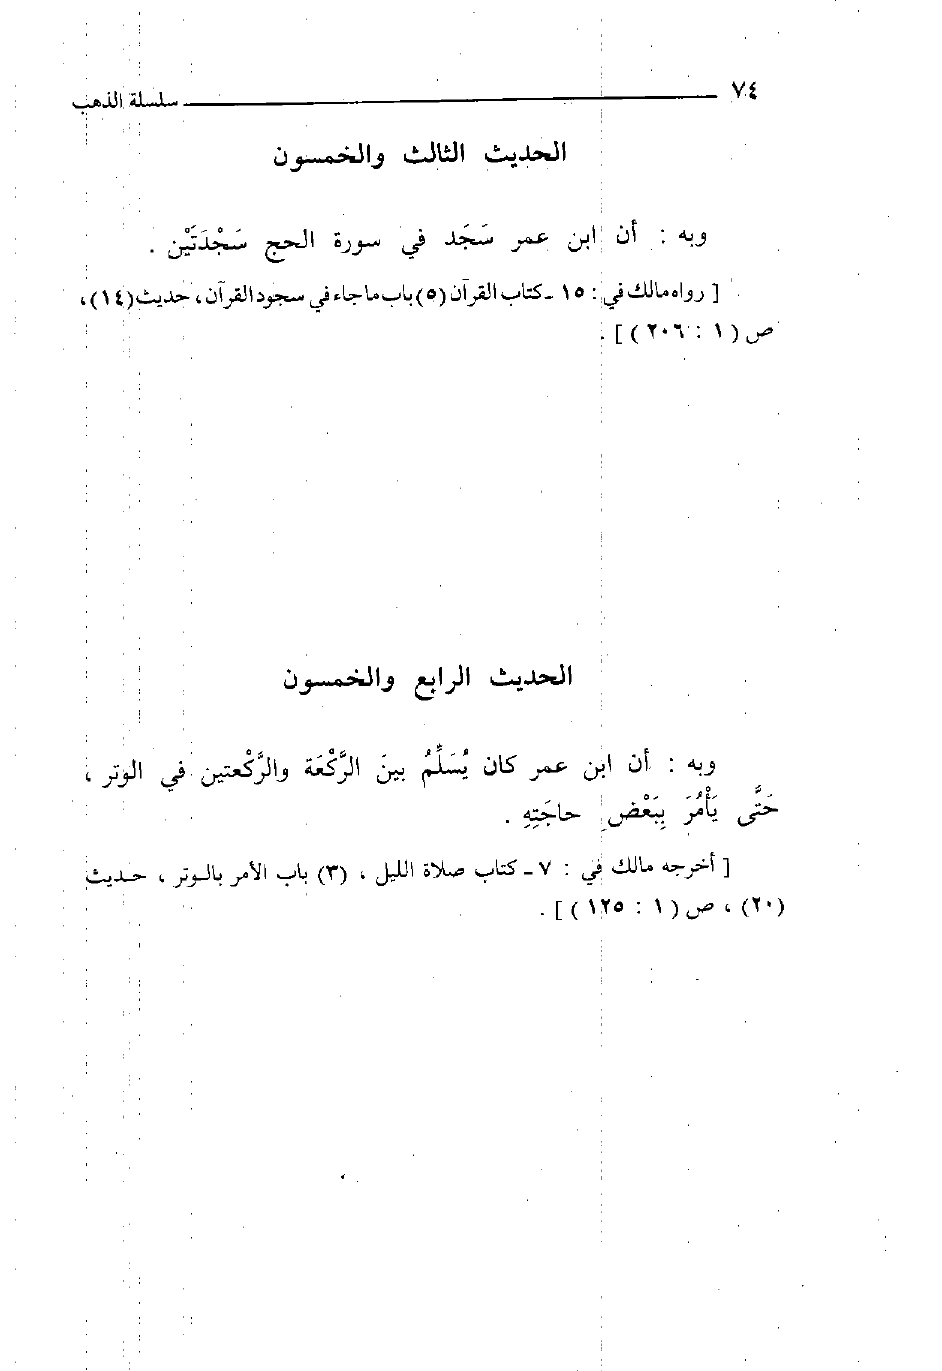 ٧٤ سلسلة الذهب
الحديث الثالث والخمسون
وبه : أن ابن عمر سَجَد في سورة الحج سَجْدَتَيْن .
[ رواه مالك في : ١٥ ـ كتاب القرآن (٥) باب ما جاء في سجود القرآن ، حديث (١٤) ،
ص ( ١ : ٢٠٦ ) ] .
الحديث الرابع والخمسون
وبه : أن ابن عمر كان يُسَلِّمُ بينَ الرَّكْعَة والرَّكْعتين في الوتر ،
حَتَّى يَأْمُرَ بِبَعْضِ حاجَتِهِ .
[ أخرجه مالك في : ٧ ـ كتاب صلاة الليل ، (٣) باب الأمر بالوتر ، حديث
(٢٠) ، ص ( ١ : ١٢٥ ) ] .